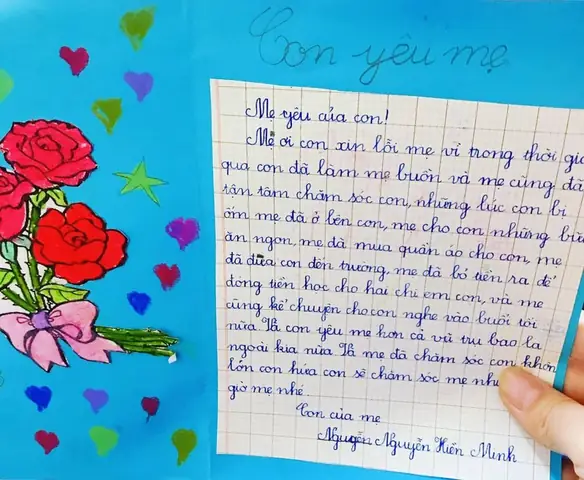 Con yêu mẹ
Mẹ yêu của con!
Mẹ ơi con xin lỗi mẹ vì trong thời gia
qua con đã làm mẹ buồn và mẹ cũng đã
tận tâm chăm sóc con, những lúc con bị
ốm mẹ đã ở bên con, mẹ cho con những bữ
ăn ngon, mẹ đã mua quần áo cho con, mẹ
đã đưa con đến trường, mẹ đã bỏ tiền ra để
đóng tiền học cho hai chị em con, và mẹ
cũng kể chuyện cho con nghe vào buổi tối
nữa. Và con yêu mẹ hơn cả vũ trụ bao la
ngoài kia nữa. Và mẹ đã chăm sóc con khôn
lớn con hứa con sẽ chăm sóc mẹ như
giờ mẹ nhé.
Con của mẹ
Nguyễn Nguyễn Hiền Minh